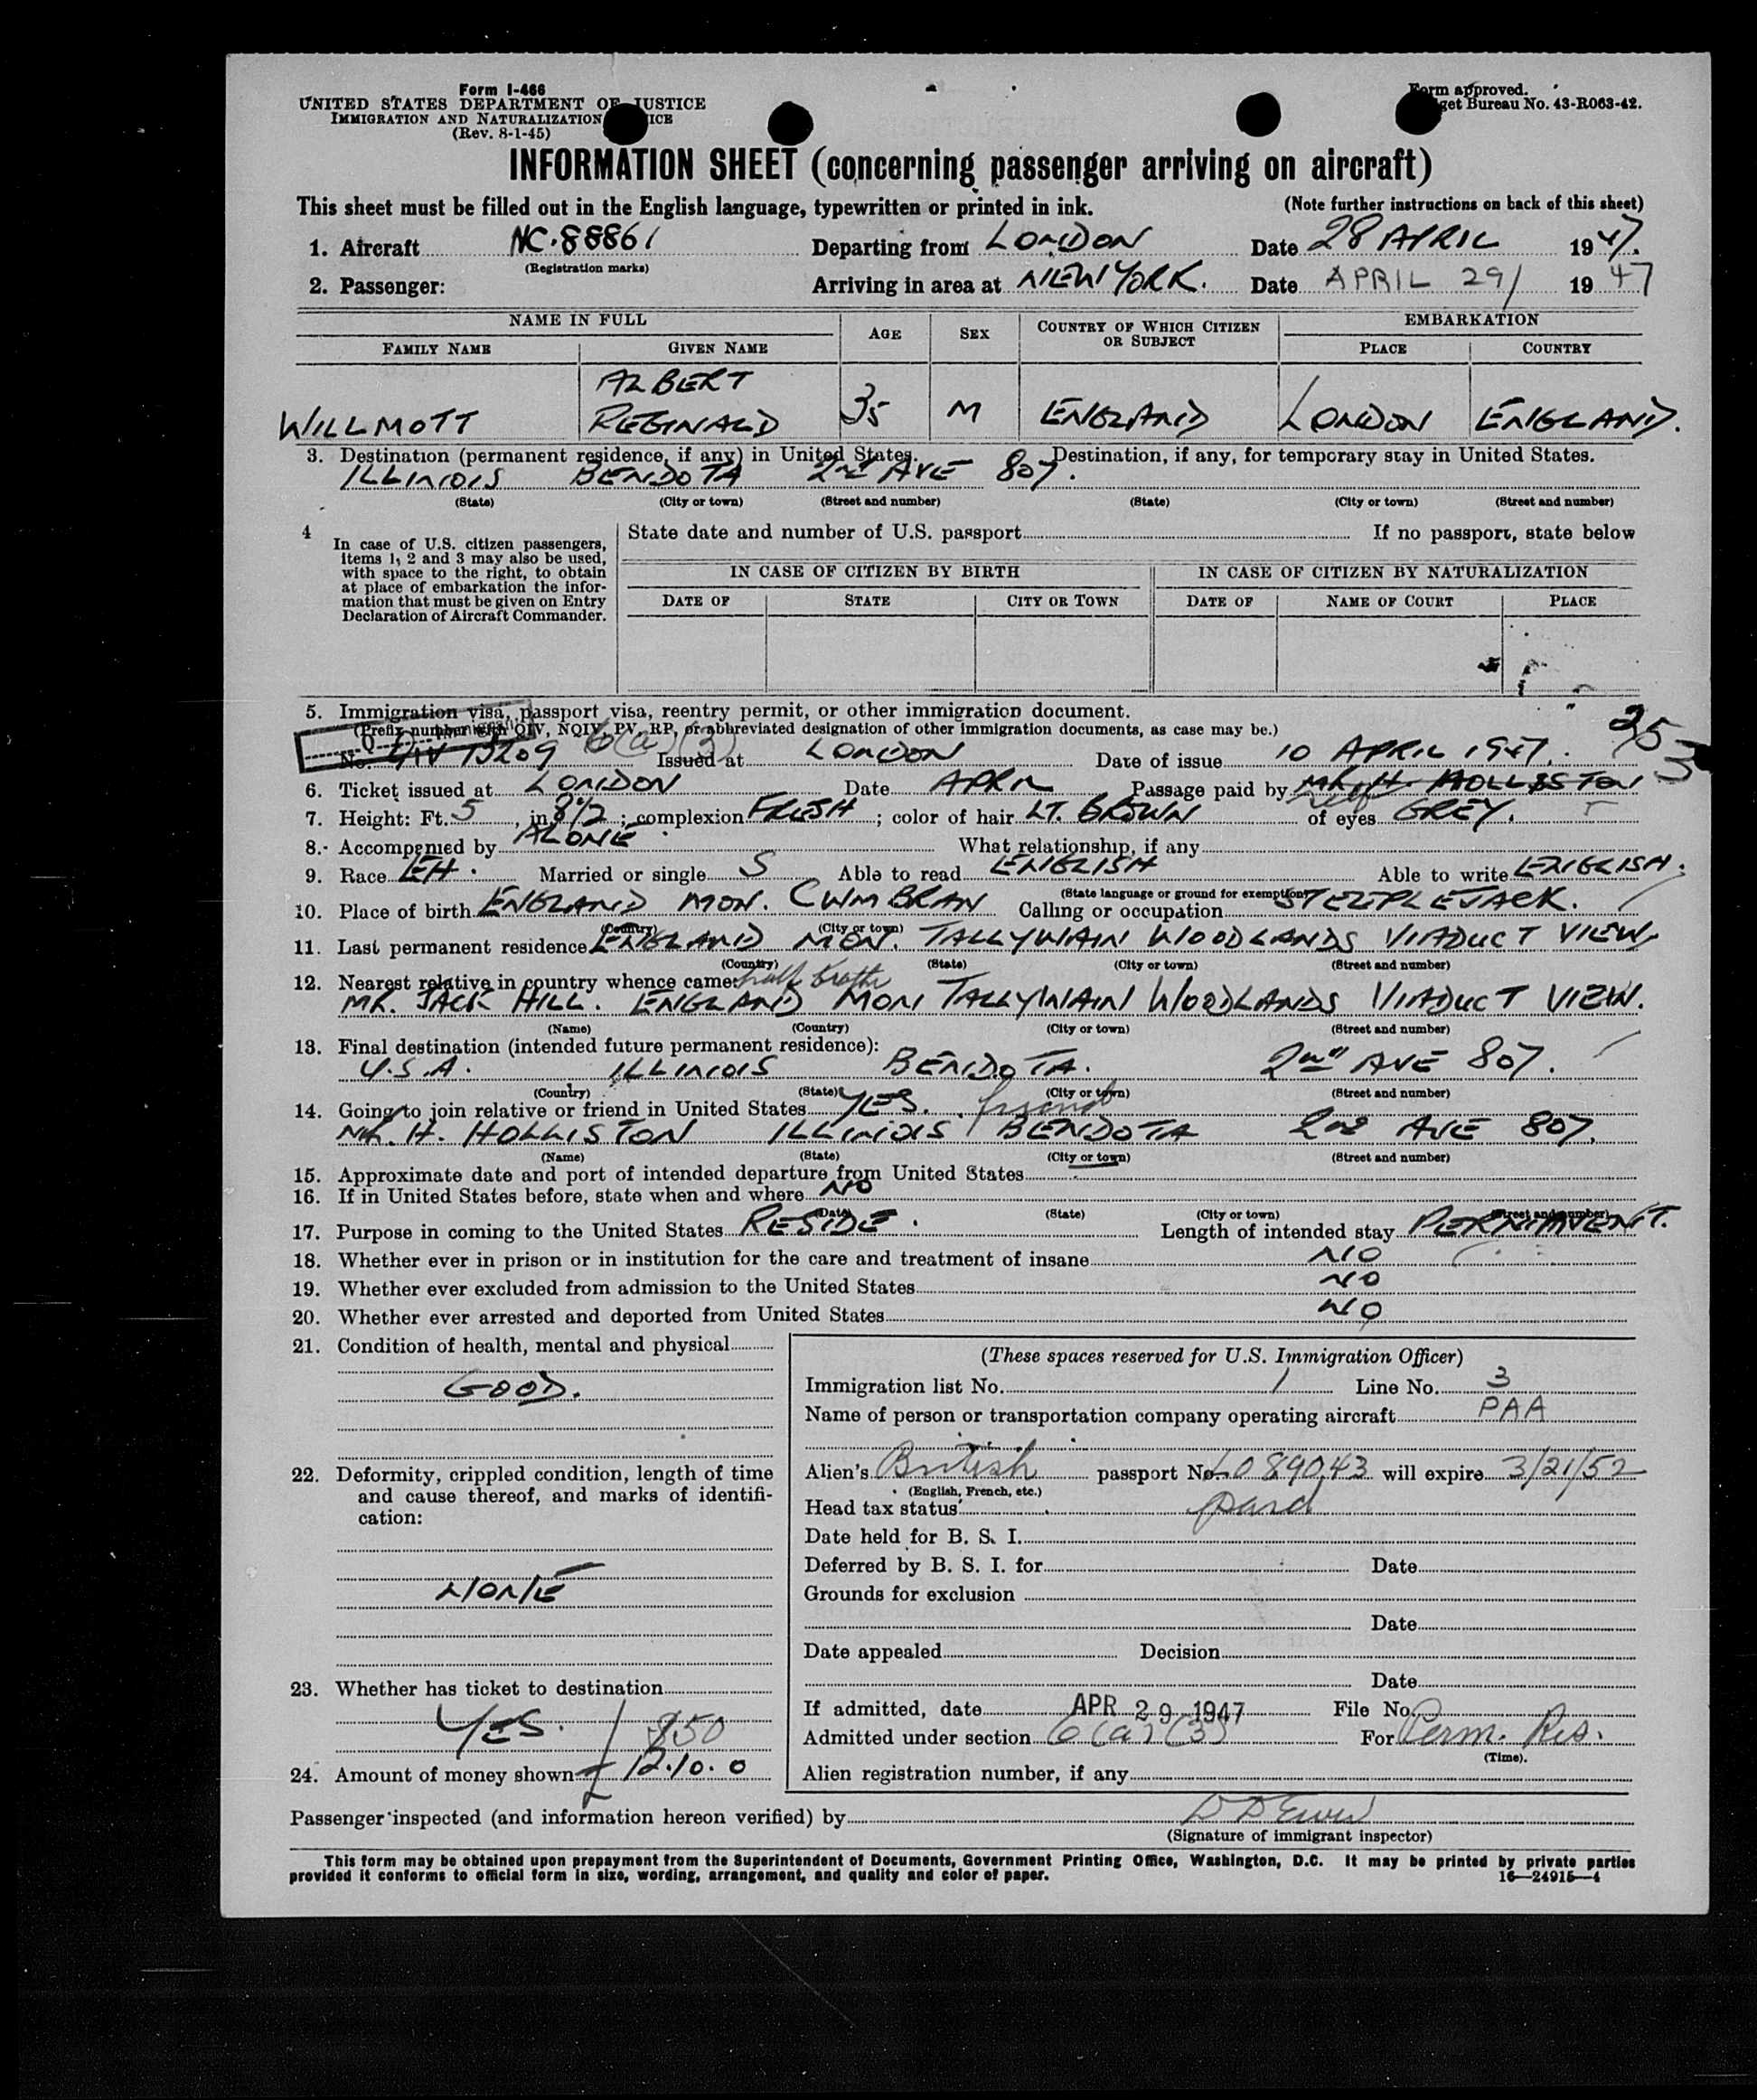 Form I-466
UNITED STATES DEPARTMENT OF JUSTICE
IMMIGRATION AND NATURALIZATION
(Rev. 8-1-45)
Form approved.
get Bureau No. 43-R063-42.
INFORMATION SHEET (concerning passenger arriving on aircraft)
This sheet must be filled out in the English language, typewritten or printed in ink. (Note further instructions on back of this sheet)
1. Aircraft NC.88861 Departing from LONDON Date 28 APRIL 1947.
(Registration marks)
2. Passenger: Arriving in area at NEW YORK. Date APRIL 29/ 1947
NAME IN FULL AGE SEX COUNTRY OF WHICH CITIZEN OR SUBJECT EMBARKATION
FAMILY NAME GIVEN NAME PLACE COUNTRY
ALBERT
WILLMOTT REGINALD 35 M ENGLAND LONDON ENGLAND.
3. Destination (permanent residence, if any) in United States. Destination, if any, for temporary stay in United States.
ILLINOIS BENDOTA 2nd AVE 807.
(State) (City or town) (Street and number) (State) (City or town) (Street and number)
4 In case of U.S. citizen passengers, items 1, 2 and 3 may also be used, with space to the right, to obtain at place of embarkation the information that must be given on Entry Declaration of Aircraft Commander.
State date and number of U.S. passport If no passport, state below
IN CASE OF CITIZEN BY BIRTH IN CASE OF CITIZEN BY NATURALIZATION
DATE OF STATE CITY OR TOWN DATE OF NAME OF COURT PLACE
5. Immigration visa, passport visa, reentry permit, or other immigration document.
(Prefix number with QIV, NQIV, PV, RP, or abbreviated designation of other immigration documents, as case may be.)
253
No. QIV 13209 6(a)(3) Issued at LONDON Date of issue 10 APRIL 1947.
6. Ticket issued at LONDON Date APRIL Passage paid by MR. H. HOLLISTON self
7. Height: Ft. 5, in. 8 1/2; complexion FRESH; color of hair LT. BROWN of eyes GREY.
8. Accompanied by ALONE. What relationship, if any
9. Race EH. Married or single S Able to read ENGLISH Able to write ENGLISH.
(State language or ground for exemption)
10. Place of birth ENGLAND MON. CWMBRAN Calling or occupation STEEPLEJACK.
(Country) (City or town)
11. Last permanent residence ENGLAND MON. TALLYWAIN WOODLANDS VIADUCT VIEW
(Country) (State) (City or town) (Street and number)
12. Nearest relative in country whence came: half brother
MR. JACK HILL. ENGLAND MON TALLYWAIN WOODLANDS VIADUCT VIEW.
(Name) (Country) (City or town) (Street and number)
13. Final destination (intended future permanent residence):
U.S.A. ILLINOIS BENDOTA. 2nd AVE 807.
(Country) (State) (City or town) (Street and number)
14. Going to join relative or friend in United States YES. friend
MR. H. HOLLISTON ILLINOIS BENDOTA 2nd AVE 807.
(Name) (State) (City or town) (Street and number)
15. Approximate date and port of intended departure from United States
16. If in United States before, state when and where NO
(Date) (State) (City or town) (Street and number)
17. Purpose in coming to the United States RESIDE. Length of intended stay PERMANENT.
18. Whether ever in prison or in institution for the care and treatment of insane NO
19. Whether ever excluded from admission to the United States NO
20. Whether ever arrested and deported from United States NO
21. Condition of health, mental and physical
GOOD.
22. Deformity, crippled condition, length of time and cause thereof, and marks of identification:
NONE
23. Whether has ticket to destination
YES. / $50
24. Amount of money shown £ 12.10.0
(These spaces reserved for U.S. Immigration Officer)
Immigration list No. 1 Line No. 3
Name of person or transportation company operating aircraft PAA
Alien's British passport No. L089043 will expire 3/21/52
(English, French, etc.)
Head tax status paid
Date held for B. S. I.
Deferred by B. S. I. for Date
Grounds for exclusion
Date
Date appealed Decision
Date
If admitted, date APR 29 1947 File No.
Admitted under section 6(a)(3) For Perm. Res.
(Time).
Alien registration number, if any
Passenger inspected (and information hereon verified) by
(Signature of immigrant inspector)
This form may be obtained upon prepayment from the Superintendent of Documents, Government Printing Office, Washington, D.C. It may be printed by private parties
provided it conforms to official form in size, wording, arrangement, and quality and color of paper. 16—24915—4